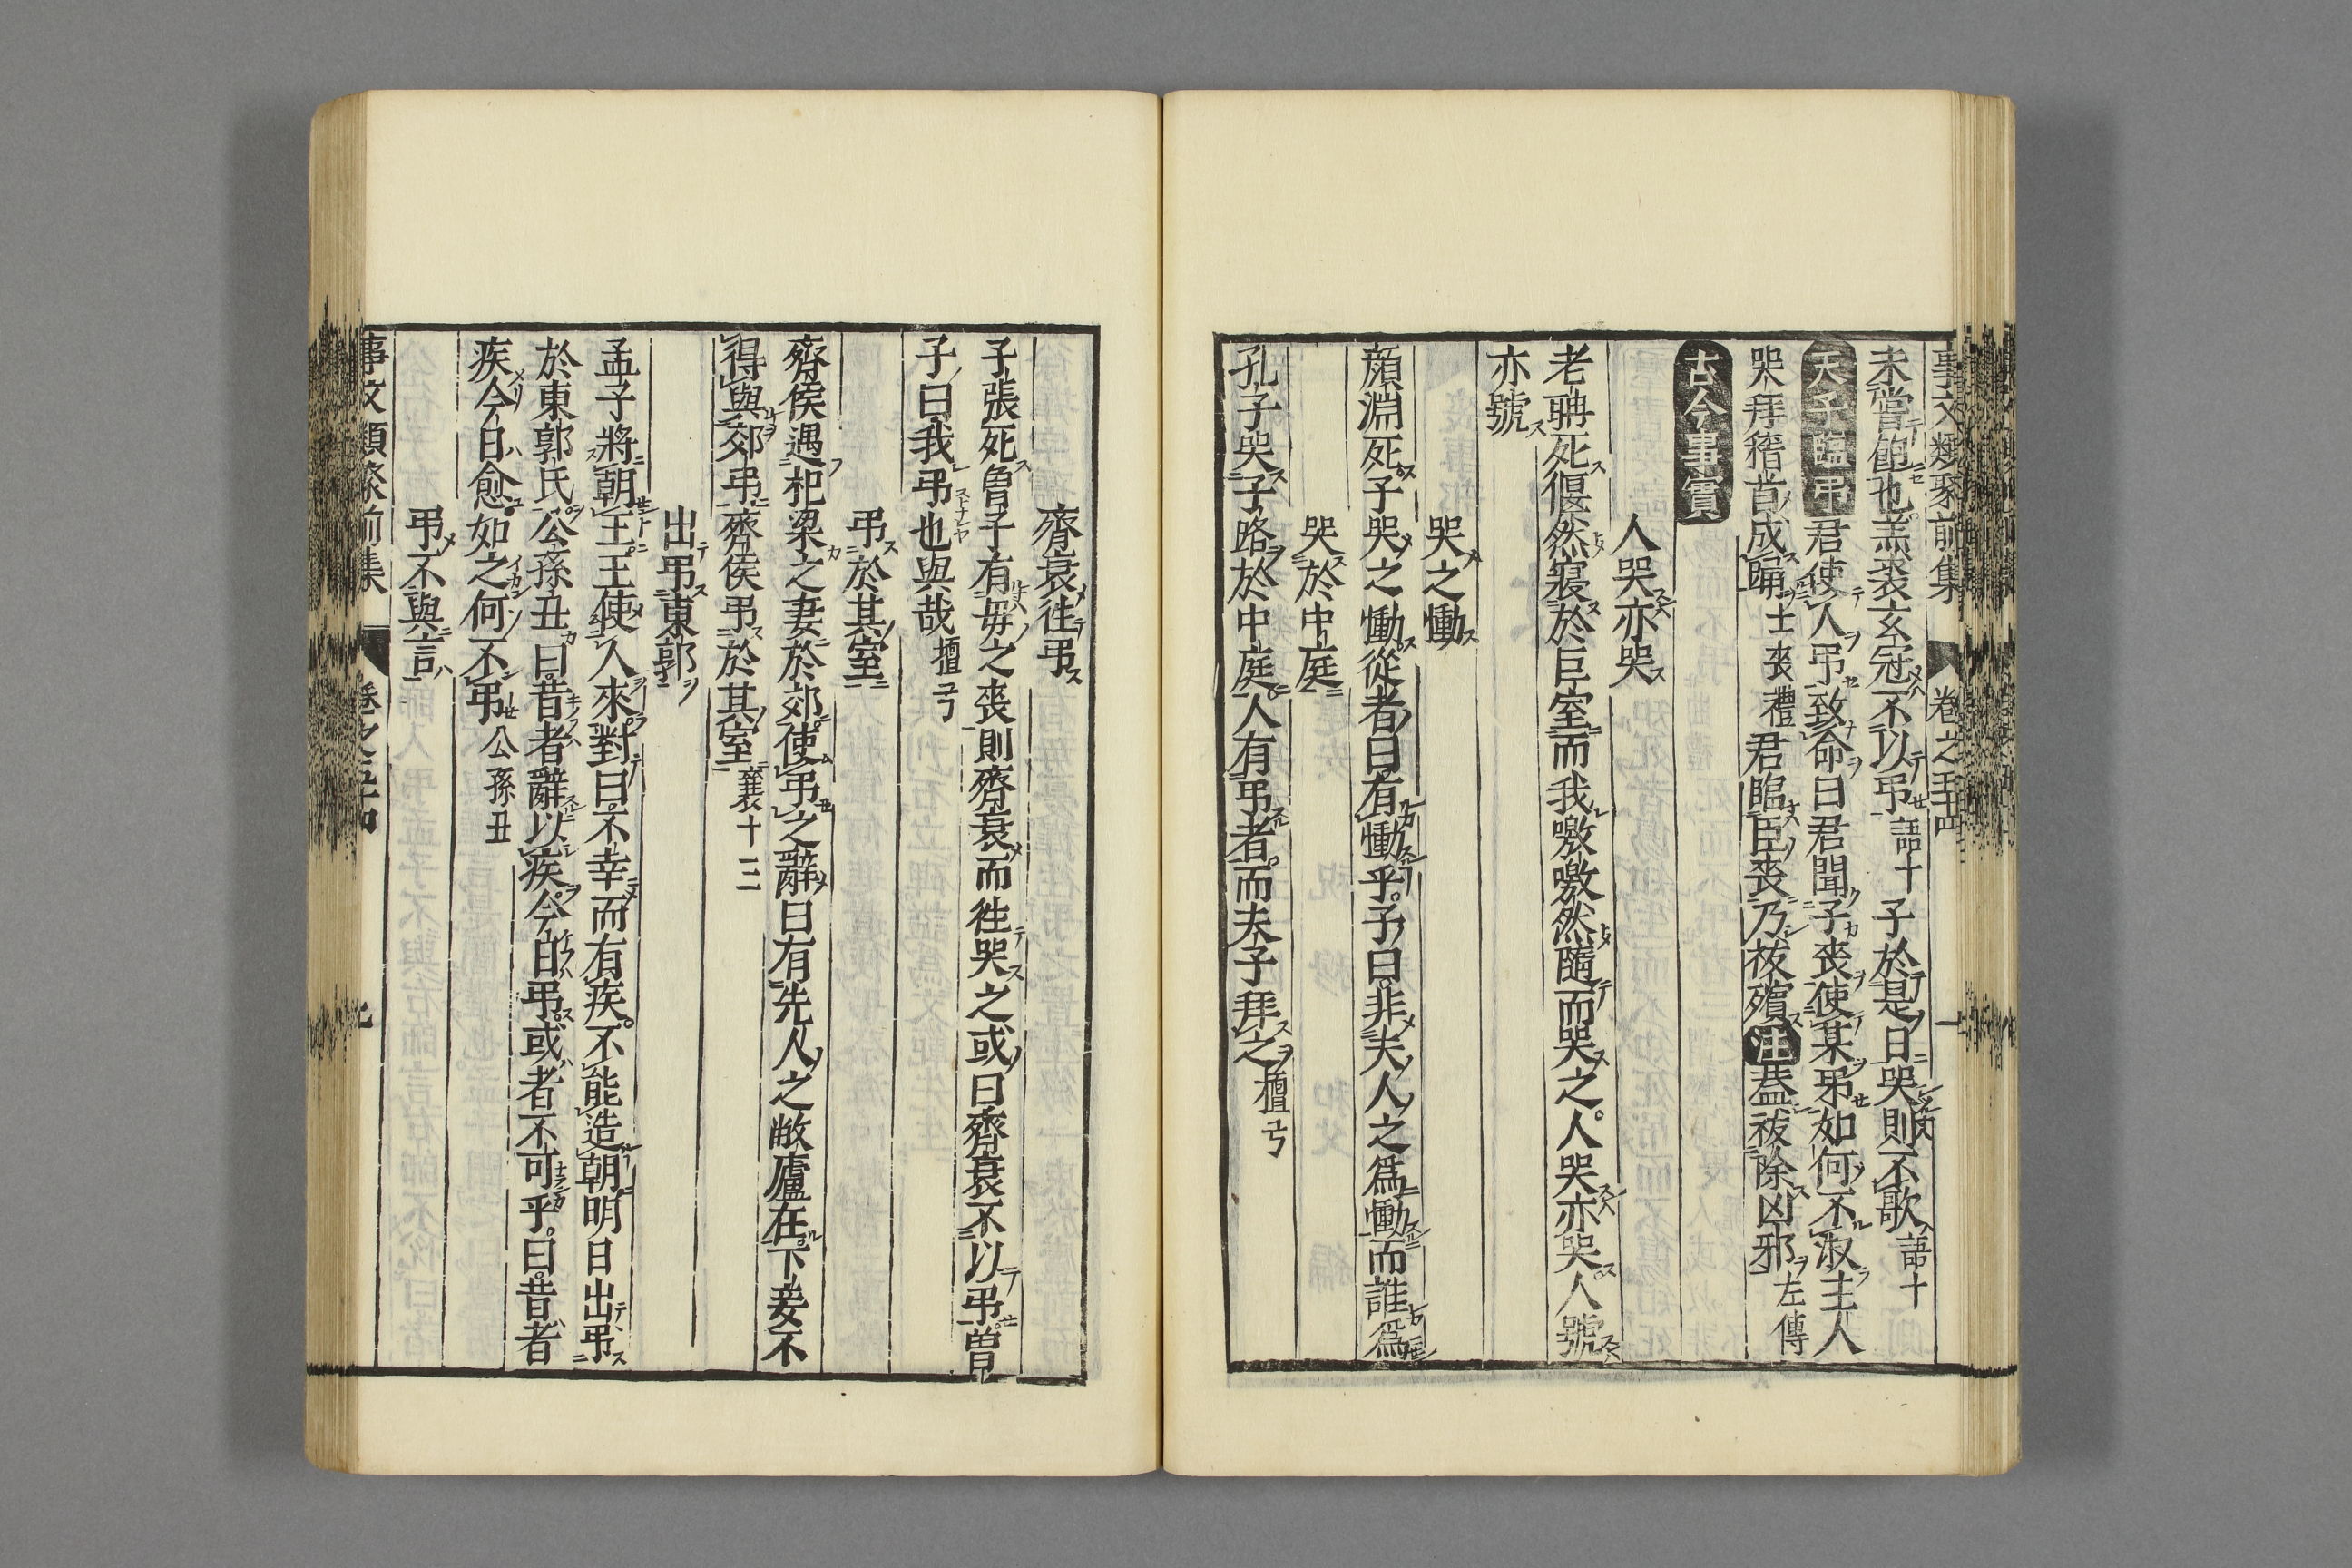 事文類聚前集　卷之五十四
未嘗飽也羔裘玄冠不以弔語十　子於是日哭則不歌語十
天子臨弔君使人弔致命曰君聞子喪使某弔如何不淑主人
哭拜稽首成踊士喪禮君臨臣喪乃袚殯注葢袚除凶邪左傳
古今事實
人哭亦哭
老聃死偃然寢於巨室而我噭噭然隨而哭之人哭亦哭人號
亦號
哭之慟
顏淵死子哭之慟從者曰有慟乎子曰非夫人之爲慟而誰爲
哭於中庭
孔子哭子路於中庭人有弔者而夫子拜之檀弓
齊衰徃弔
子張死曾子有毋之喪則齊衰而徃哭之或曰齊衰不以弔曽
子曰我弔也與哉檀弓
弔於其室
齊侯遇杞梁之妻於郊使弔之辭曰有先人之敝廬在下妾不
得與郊弔齊侯弔於其室襄十三
出弔東郭
孟子將朝王王使人來對曰不幸而有疾不能造朝明日出弔
於東郭氏公孫丑曰昔者辭以疾今日弔或者不可乎曰昔者
疾今日愈如之何不弔公孫丑
弔不與言
事文類聚前集　卷之五十四